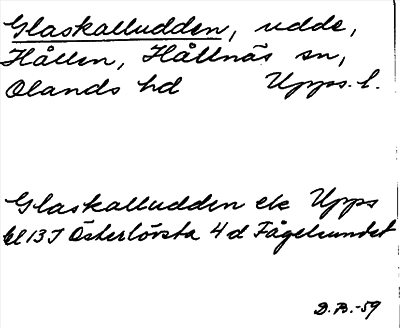 Glaskalludden, udde,
Hållen, Hållnäs sn,
Olands hd Upps. l.
Glaskalludden ek Upps
bl 13 I Österlövsta 4 d Fågelsundet
D.B.-59